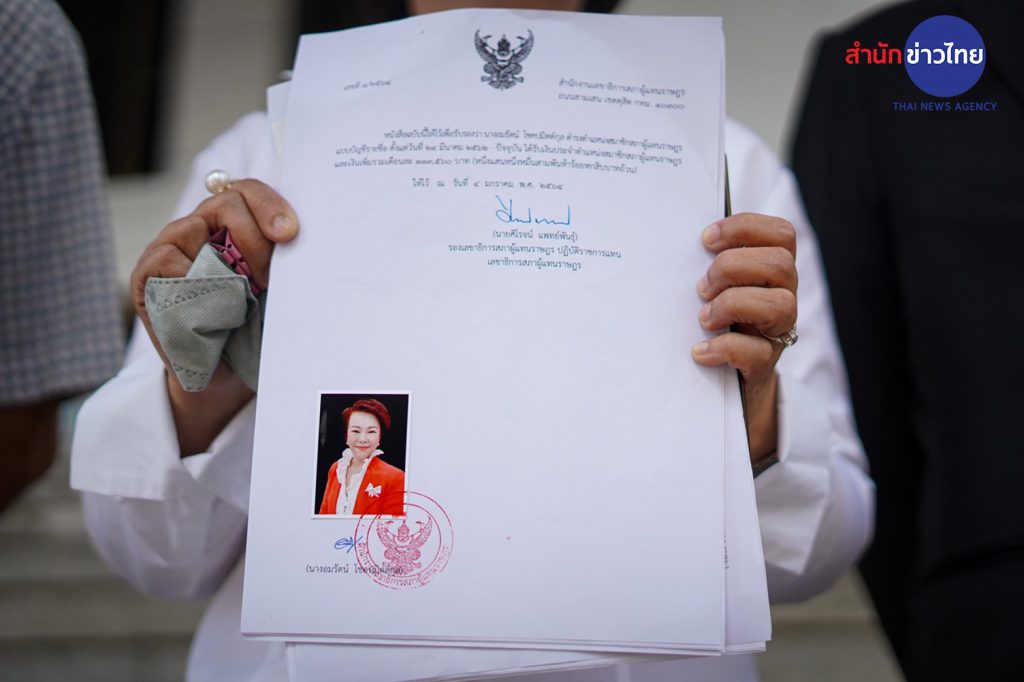 สำนักข่าวไทย
THAI NEWS AGENCY
เลขที่ ๘/๒๕๖๔
สำนักงานเลขาธิการสภาผู้แทนราษฎร
ถนนสามเสน เขตดุสิต กทม. ๑๐๓๐๐
หนังสือฉบับนี้ให้ไว้เพื่อรับรองว่า นางอมรัตน์ โชคปมิตต์กุล ดำรงตำแหน่งสมาชิกสภาผู้แทนราษฎร
แบบบัญชีรายชื่อ ตั้งแต่วันที่ ๒๔ มีนาคม ๒๕๖๒ - ปัจจุบัน ได้รับเงินประจำตำแหน่งสมาชิกสภาผู้แทนราษฎร
และเงินเพิ่มรวมเดือนละ ๑๑๓,๕๖๐ บาท (หนึ่งแสนหนึ่งหมื่นสามพันห้าร้อยหกสิบบาทถ้วน)
ให้ไว้ ณ วันที่ ๔ มกราคม พ.ศ. ๒๕๖๔
(นายศิโรจน์ แพทย์พันธุ์)
รองเลขาธิการสภาผู้แทนราษฎร ปฏิบัติราชการแทน
เลขาธิการสภาผู้แทนราษฎร
(นางอมรัตน์ โชคปมิตต์กุล)
สำนักงานเลขาธิการสภาผู้แทนราษฎร